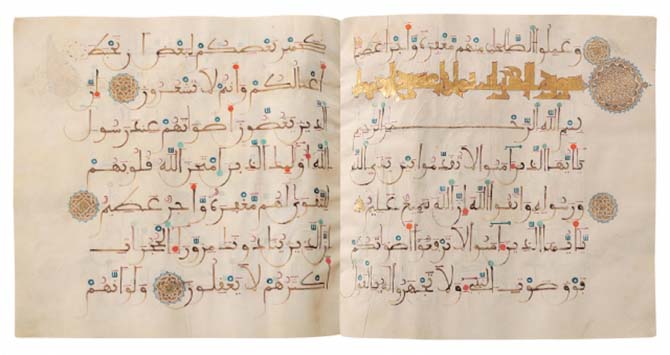 وعملوا الصالحات منهم مغفرة وأجرا عظيما
سورة الحجرات
بسم الله الرحمن الرحيم
يأيها الذين آمنوا لا تقدموا بين يدي الله
ورسوله واتقوا الله إن الله سميع عليم
يأيها الذين آمنوا لا ترفعوا أصواتكم
فوق صوت النبي ولا تجهروا له بالقول
كجهر بعضكم لبعض أن تحبط
أعمالكم وأنتم لا تشعرون إن
الذين يغضون أصواتهم عند رسول
الله أوليك الذين امتحن الله قلوبهم
للتقوى لهم مغفرة وأجر عظيم
إن الذين ينادونك من وراء الحجرات
أكثرهم لا يعقلون ولو أنهم